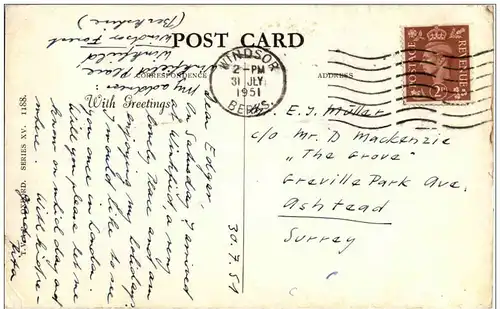 POST CARD
CORRESPONDENCE
ADDRESS
With Greetings
WINDSOR
2-PM
31 JLY
1951
BERKS.
POSTAGE
REVENUE
My address:
Place
Winkfield
Windsor Forest
(Berkshire)
30.7.51
Dear Edgar,
On Saturday I arrived
at Winkfield, a very
lovely place and am
enjoying my holidays.
I would like to see
you once in London.
Will you please let me
know on which day and
where.
With kind re-
E. J. Müller
c/o Mr. D Mackenzie
„The Grove"
Greville Park Ave.
Ashtead
Surrey
SERIES XV. 1188.